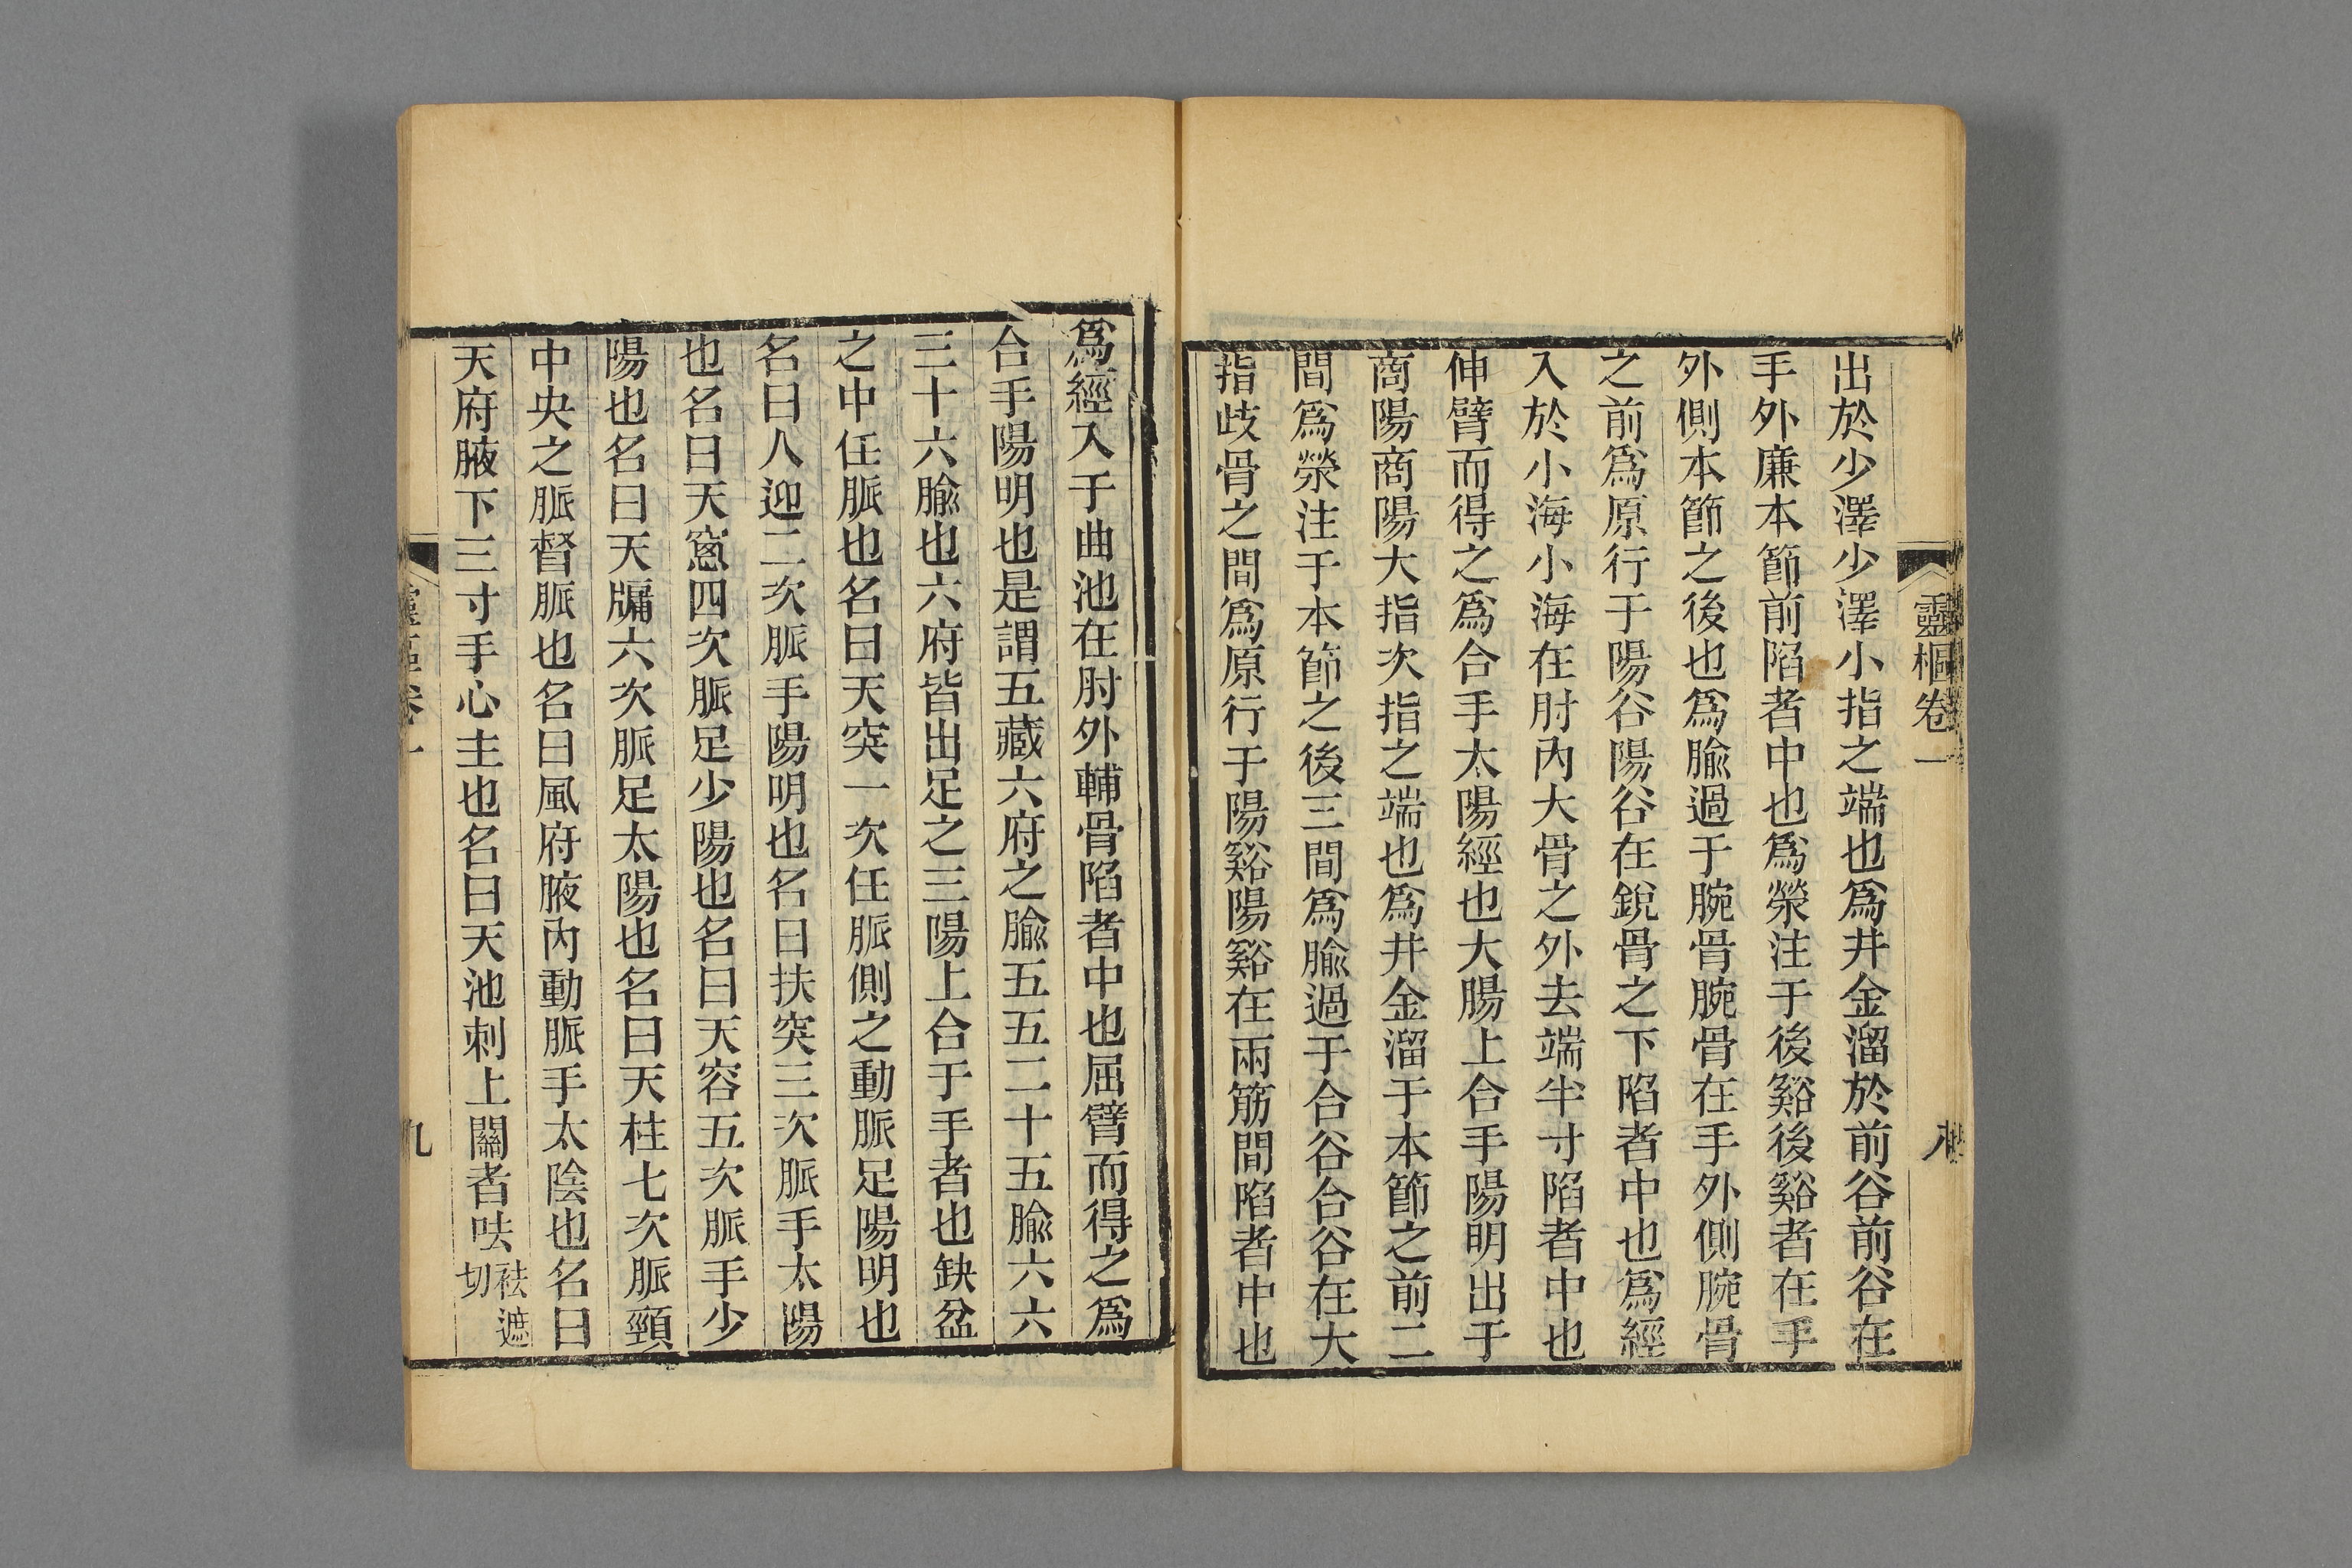 靈樞卷一
八
出於少澤少澤小指之端也爲井金溜於前谷前谷在
手外廉本節前陷者中也爲滎注于後谿後谿者在手
外側本節之後也爲腧過于腕骨腕骨在手外側腕骨
之前爲原行于陽谷陽谷在銳骨之下陷者中也爲經
入於小海小海在肘內大骨之外去端半寸陷者中也
伸臂而得之爲合手太陽經也大腸上合手陽明出于
商陽商陽大指次指之端也爲井金溜于本節之前二
間爲滎注于本節之後三間爲腧過于合谷合谷在大
指歧骨之間爲原行于陽谿陽谿在兩筋間陷者中也
爲經入于曲池在肘外輔骨陷者中也屈臂而得之爲
合手陽明也是謂五藏六府之腧五五二十五腧六六
三十六腧也六府皆出足之三陽上合于手者也缺盆
之中任脈也名曰天突一次任脈側之動脈足陽明也
名曰人迎二次脈手陽明也名曰扶突三次脈手太陽
也名曰天窻四次脈足少陽也名曰天容五次脈手少
陽也名曰天牖六次脈足太陽也名曰天柱七次脈頸
中央之脈督脈也名曰風府腋內動脈手太陰也名曰
天府腋下三寸手心主也名曰天池刺上關者呿袪遮切
靈樞卷一
九